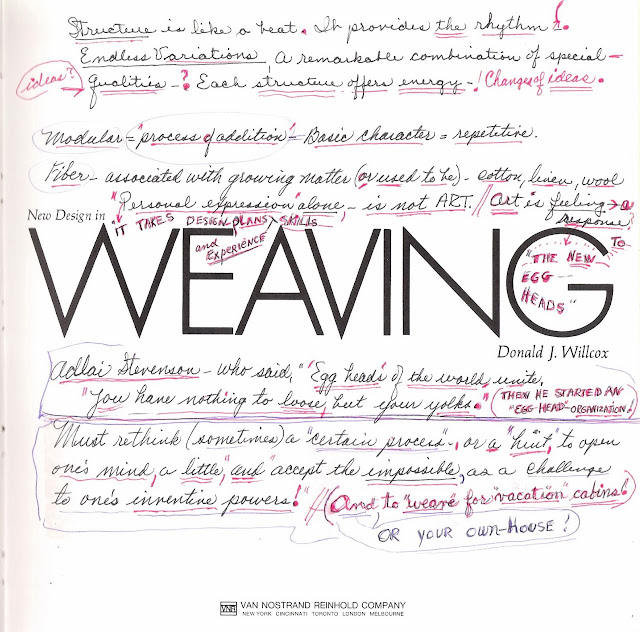 Structure is like a beat. It provides the rhythm!
Endless Variations, A remarkable combination of special-
ideas?
qualities-? Each structure offers energy-! Changes of ideas.
Modular="process of addition"- Basic character = repetitive.
Fiber- associated with growing matter (or used to be)- cotton, linen, wool
"Personal expression" alone, - is not ART. // Art is feeling → a
response!
New Design in
IT TAKES DESIGN PLANS, SKILLS
and
EXPERIENCE
TO
"THE NEW
EGG
HEADS"
WEAVING
Donald J. Willcox
Adlai Stevenson- who said, "Egg heads" of the world, unite,
"You have nothing to loose, but your yolks."
THEN HE STARTED AN
"EGG HEAD"-ORGANIZATION!
Must rethink (sometimes) a "certain process"-, or a "hint," to open
one's mind, a little, "and" accept the impossible, as a challenge
to one's inventive powers!" // (And to "weave" for "vacation" cabins!
OR YOUR OWN-HOUSE!
VNR
VAN NOSTRAND REINHOLD COMPANY
NEW YORK CINCINNATI TORONTO LONDON MELBOURNE